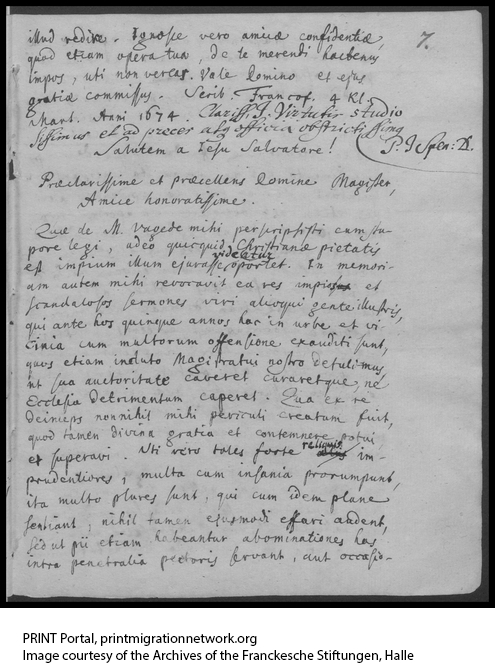 7.
illud redire. Ignosce vero amicae confidentiae,
quod etiam opera tua, de te merendi hactenus
impos, uti non verear. Vale Domino et ejus
gratiae commissus. Scrib. Francof. 4 Kl.
Mart. Anni 1674. Clariss. T. Virtutis studio
sissimus et ad preces atq officia obstrictissimq
P. J. Spen: D.
Salutem a Jesu Salvatore!
Praeclarissime et praecellens Domine Magister,
Amice honoratissime.
Quae de M. Vagede mihi perscripsisti cum stu-
pore legi, adeo quicquid Christianae pietatis
videatur
est impium illum ejurasse oportet. In memori-
am autem mihi revocavit ea res impios et
scandalosos sermones viri alioqui gente illustris,
qui ante hos quinque annos hac in urbe et vi-
cinia cum multorum offensione exauditi sunt,
quos etiam inclyto Magistratui nostro detulimus,
ut sua auctoritate caveret curaretque, ne
Ecclesia detrimentum caperet. Qua ex re
deinceps nonnihil mihi periculi creatum fuit,
quod tamen divina gratia et contemnere potui
et superavi. Uti vero tales forte reliquis im-
prudentiores, multa cum insania prorumpunt,
ita multo plures sunt, qui cum idem plane
sentiant, nihil tamen ejusmodi effari audent,
sed ut pii etiam habeantur abominationes has
intra penetralia pectoris servant, aut occasio-
PRINT Portal, printmigrationnetwork.org
Image courtesy of the Archives of the Franckesche Stiftungen, Halle